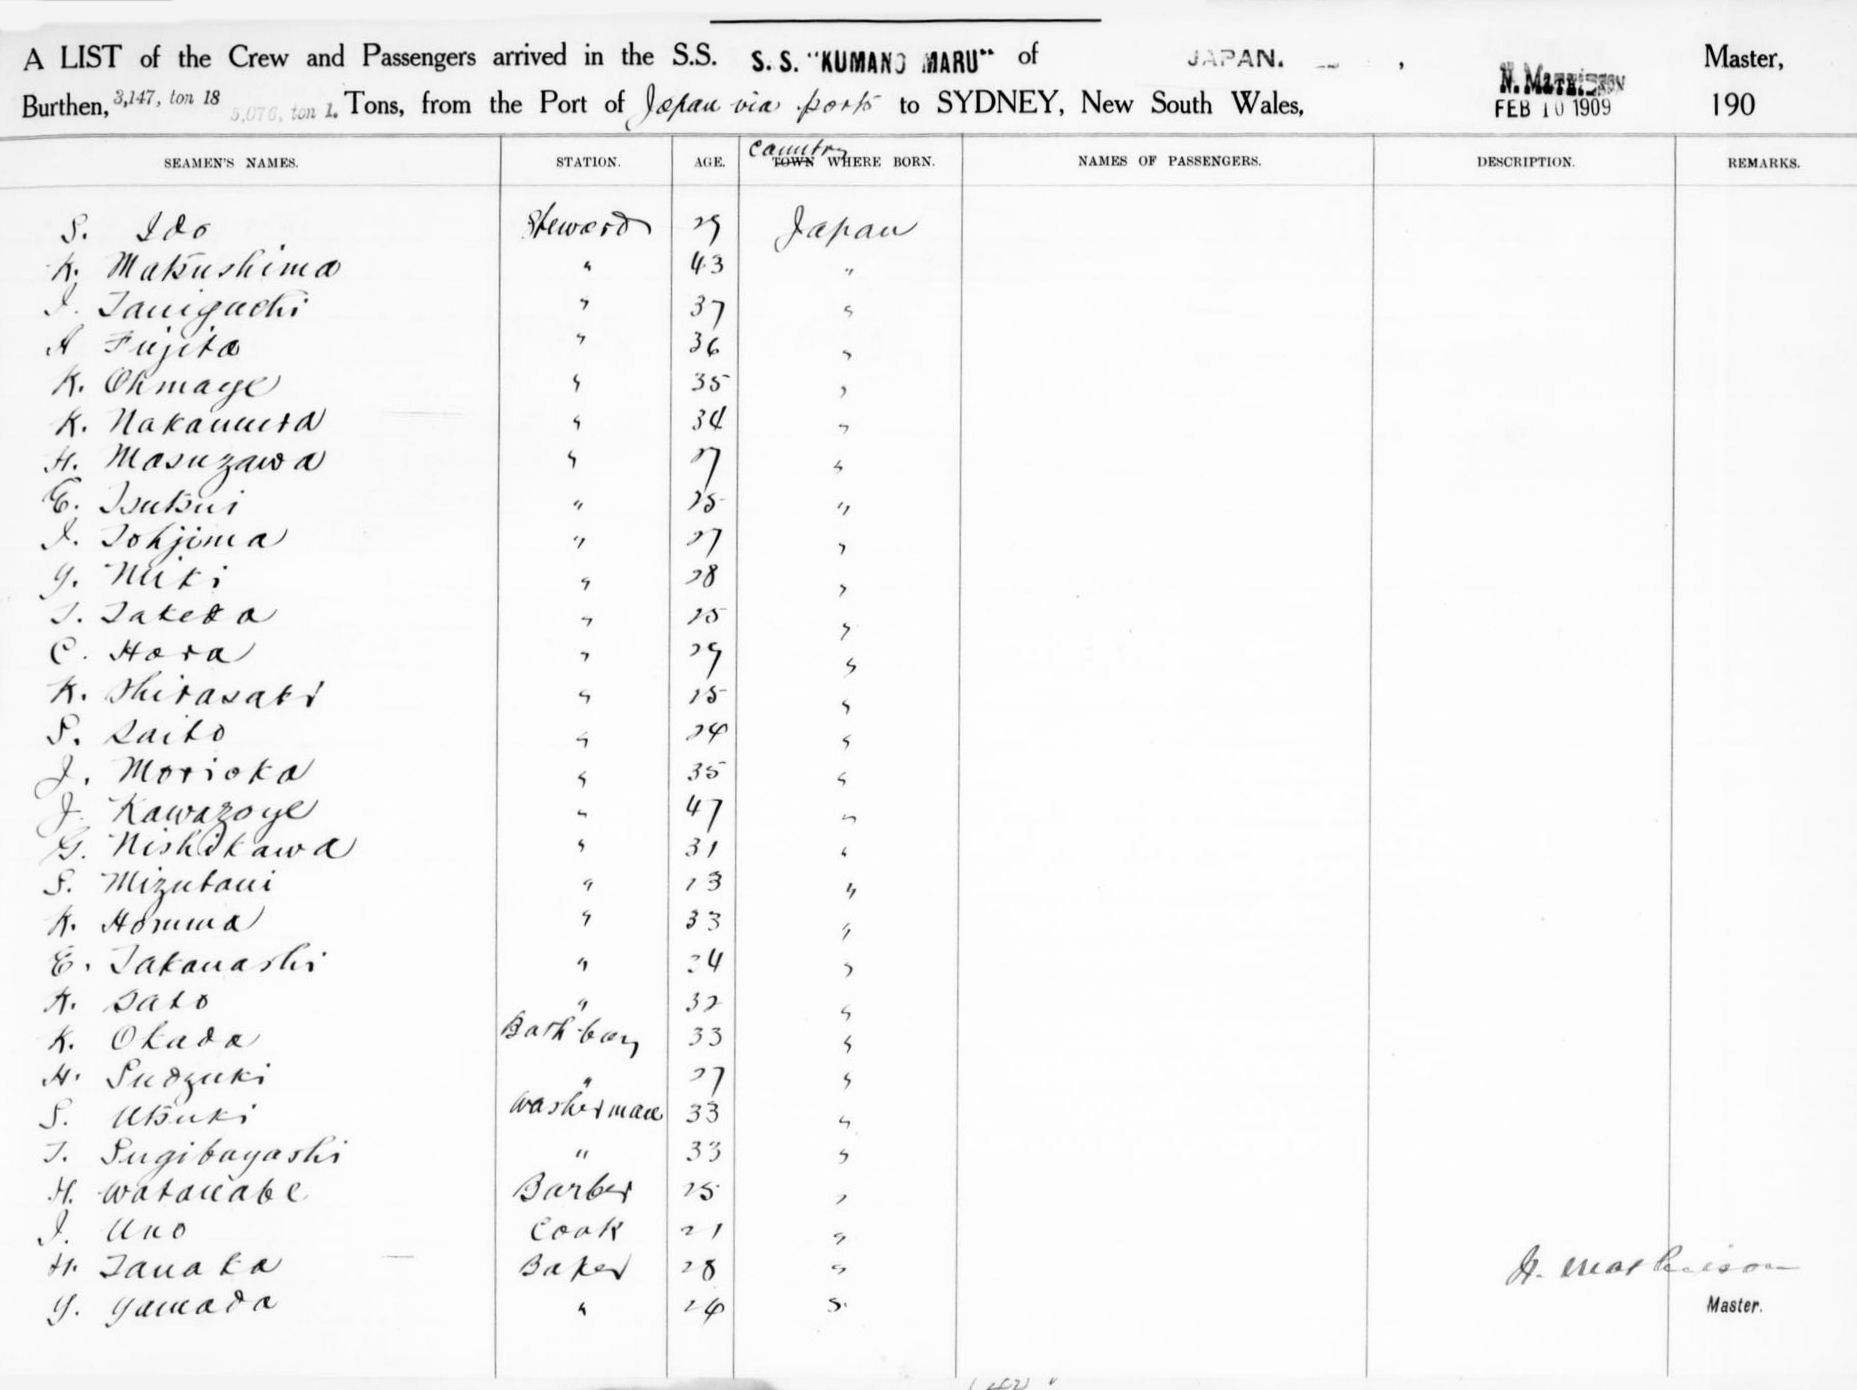 A LIST of the Crew and Passengers arrived in the S.S. S. S. "KUMANO MARU" of JAPAN. , Master,
Burthen, 3,147, ton 18 5,076, ton 1. Tons, from the Port of Japan via ports to SYDNEY, New South Wales, FEB 10 1909 190
SEAMEN'S NAMES. STATION. AGE. Country TOWN WHERE BORN. NAMES OF PASSENGERS. DESCRIPTION. REMARKS.
S. Ido Steward 29 Japan
K. Matsushima " 43 "
I. Taniguchi " 37 "
A Fujita " 36 "
K. Ohmaye " 35 "
K. Nakamura " 34 "
H. Masuzawa " 27 "
E. Tsutsui " 25 "
I. Tohjima " 27 "
Y. Miki " 28 "
T. Takeda " 25 "
C. Hora " 29 "
K. Shirasaki " 25 "
S. Saito " 24 "
J. Morioka " 35 "
J. Kawazoye " 47 "
G. Nishikawa " 31 "
S. Mizutani " 23 "
K. Homma " 33 "
E. Takanashi " 24 "
K. Sato " 32 "
K. Okada Bath-boy 33 "
H. Sudzuki " 27 "
S. Utsuki Washerman 33 "
T. Sugibayashi " 33 "
H. Watanabe Barber 25 "
I. Uno Cook 21 "
H. Tanaka Baker 28 "
Y. Yamada " 24 "
Master.